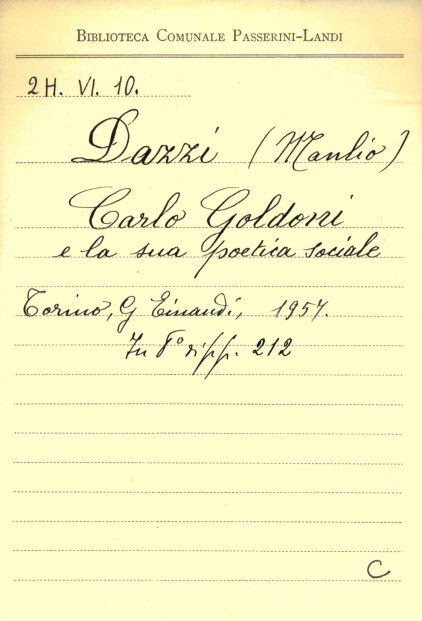 BIBLIOTECA COMUNALE PASSERINI-LANDI
2H. VI. 10.
Dazzi (Manlio)
Carlo Goldoni
e la sua poetica sociale
Torino, G Einaudi, 1957.
In 8° di pp. 212
C